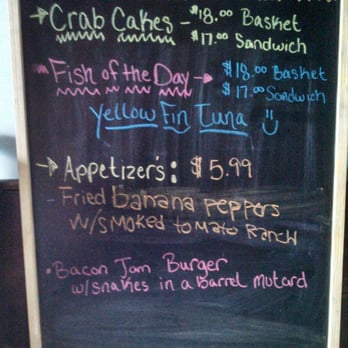 → Crab Cakes - $18.00 Basket
$17.00 Sandwich
Fish of the Day → $18.00 Basket
$17.00 Sandwich
Yellow Fin Tuna
→ Appetizer's: $5.99
- Fried banana peppers
w/smoked tomato Ranch
• Bacon Jam Burger
w/snakes in a Barrel mutard